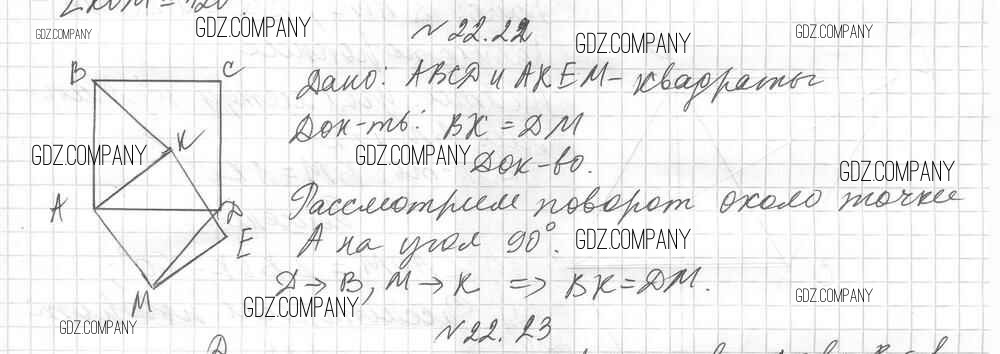 GDZ.COMPANY GDZ.COMPANY GDZ.COMPANY GDZ.COMPANY
№22.22
Дано: ABCD и AKEM - квадраты
B C
Док-ть: BK = DM
K
GDZ.COMPANY GDZ.COMPANY GDZ.COMPANY
Док-во.
Рассмотрим поворот около точки
A D
A на угол 90°. GDZ.COMPANY
E
D → B, M → K => BK = DM.
M
GDZ.COMPANY GDZ.COMPANY GDZ.COMPANY
№22.23
D